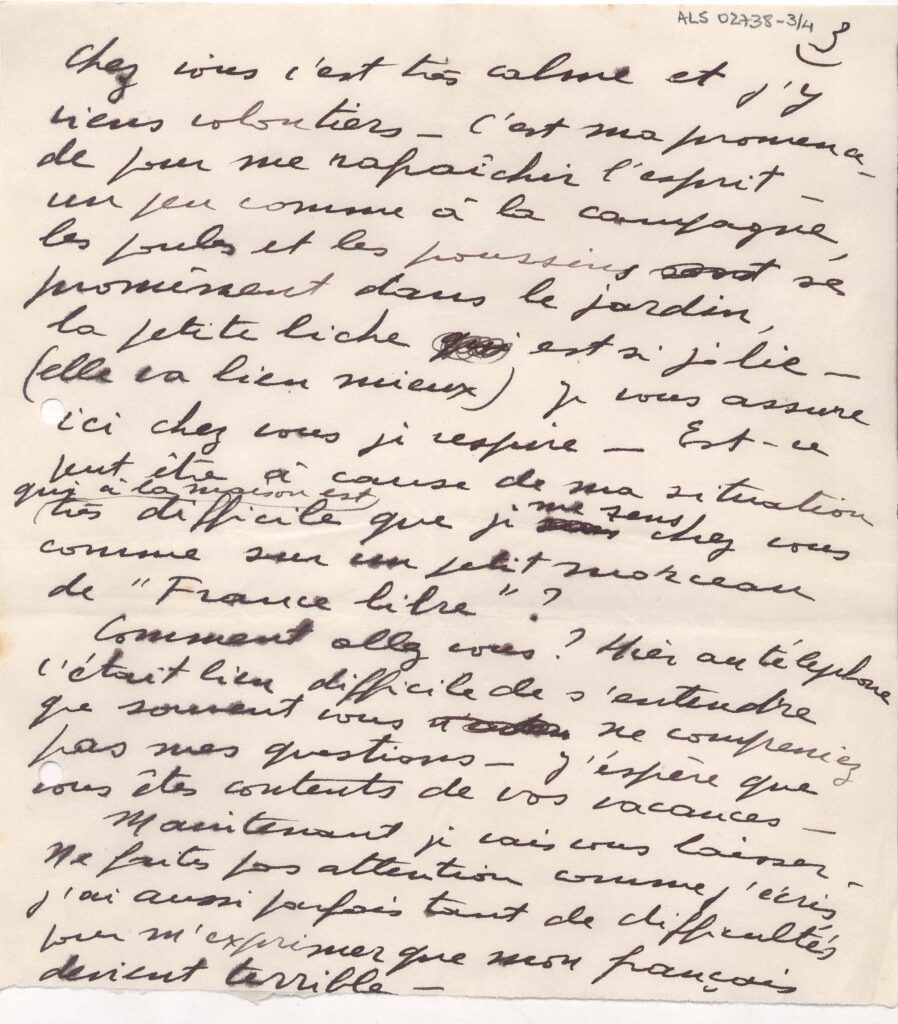 ALS 02738-3/4
3
Chez vous c'est très calme et j'y
viens volontiers – C'est ma promena-
de pour me rafraîchir l'esprit –
un peu comme à la campagne,
les poules et les poussins sont se
promènent dans le jardin,
la petite biche qui est si jolie –
(elle va bien mieux) je vous assure
ici chez vous je respire – Est-ce
peut être à cause de ma situation
qui à la maison est
très difficile que je me sens chez vous
comme sur un petit morceau
de "France libre"?
Comment allez vous? Hier au téléphone
c'était bien difficile de s'entendre
que souvent vous ne compreniez
pas mes questions – J'espère que
vous êtes contents de vos vacances –
Maintenant je vais vous laisser –
Ne faites pas attention comme j'écris,
j'ai aussi parfois tant de difficultés
pour m'exprimer que mon français
devient terrible –